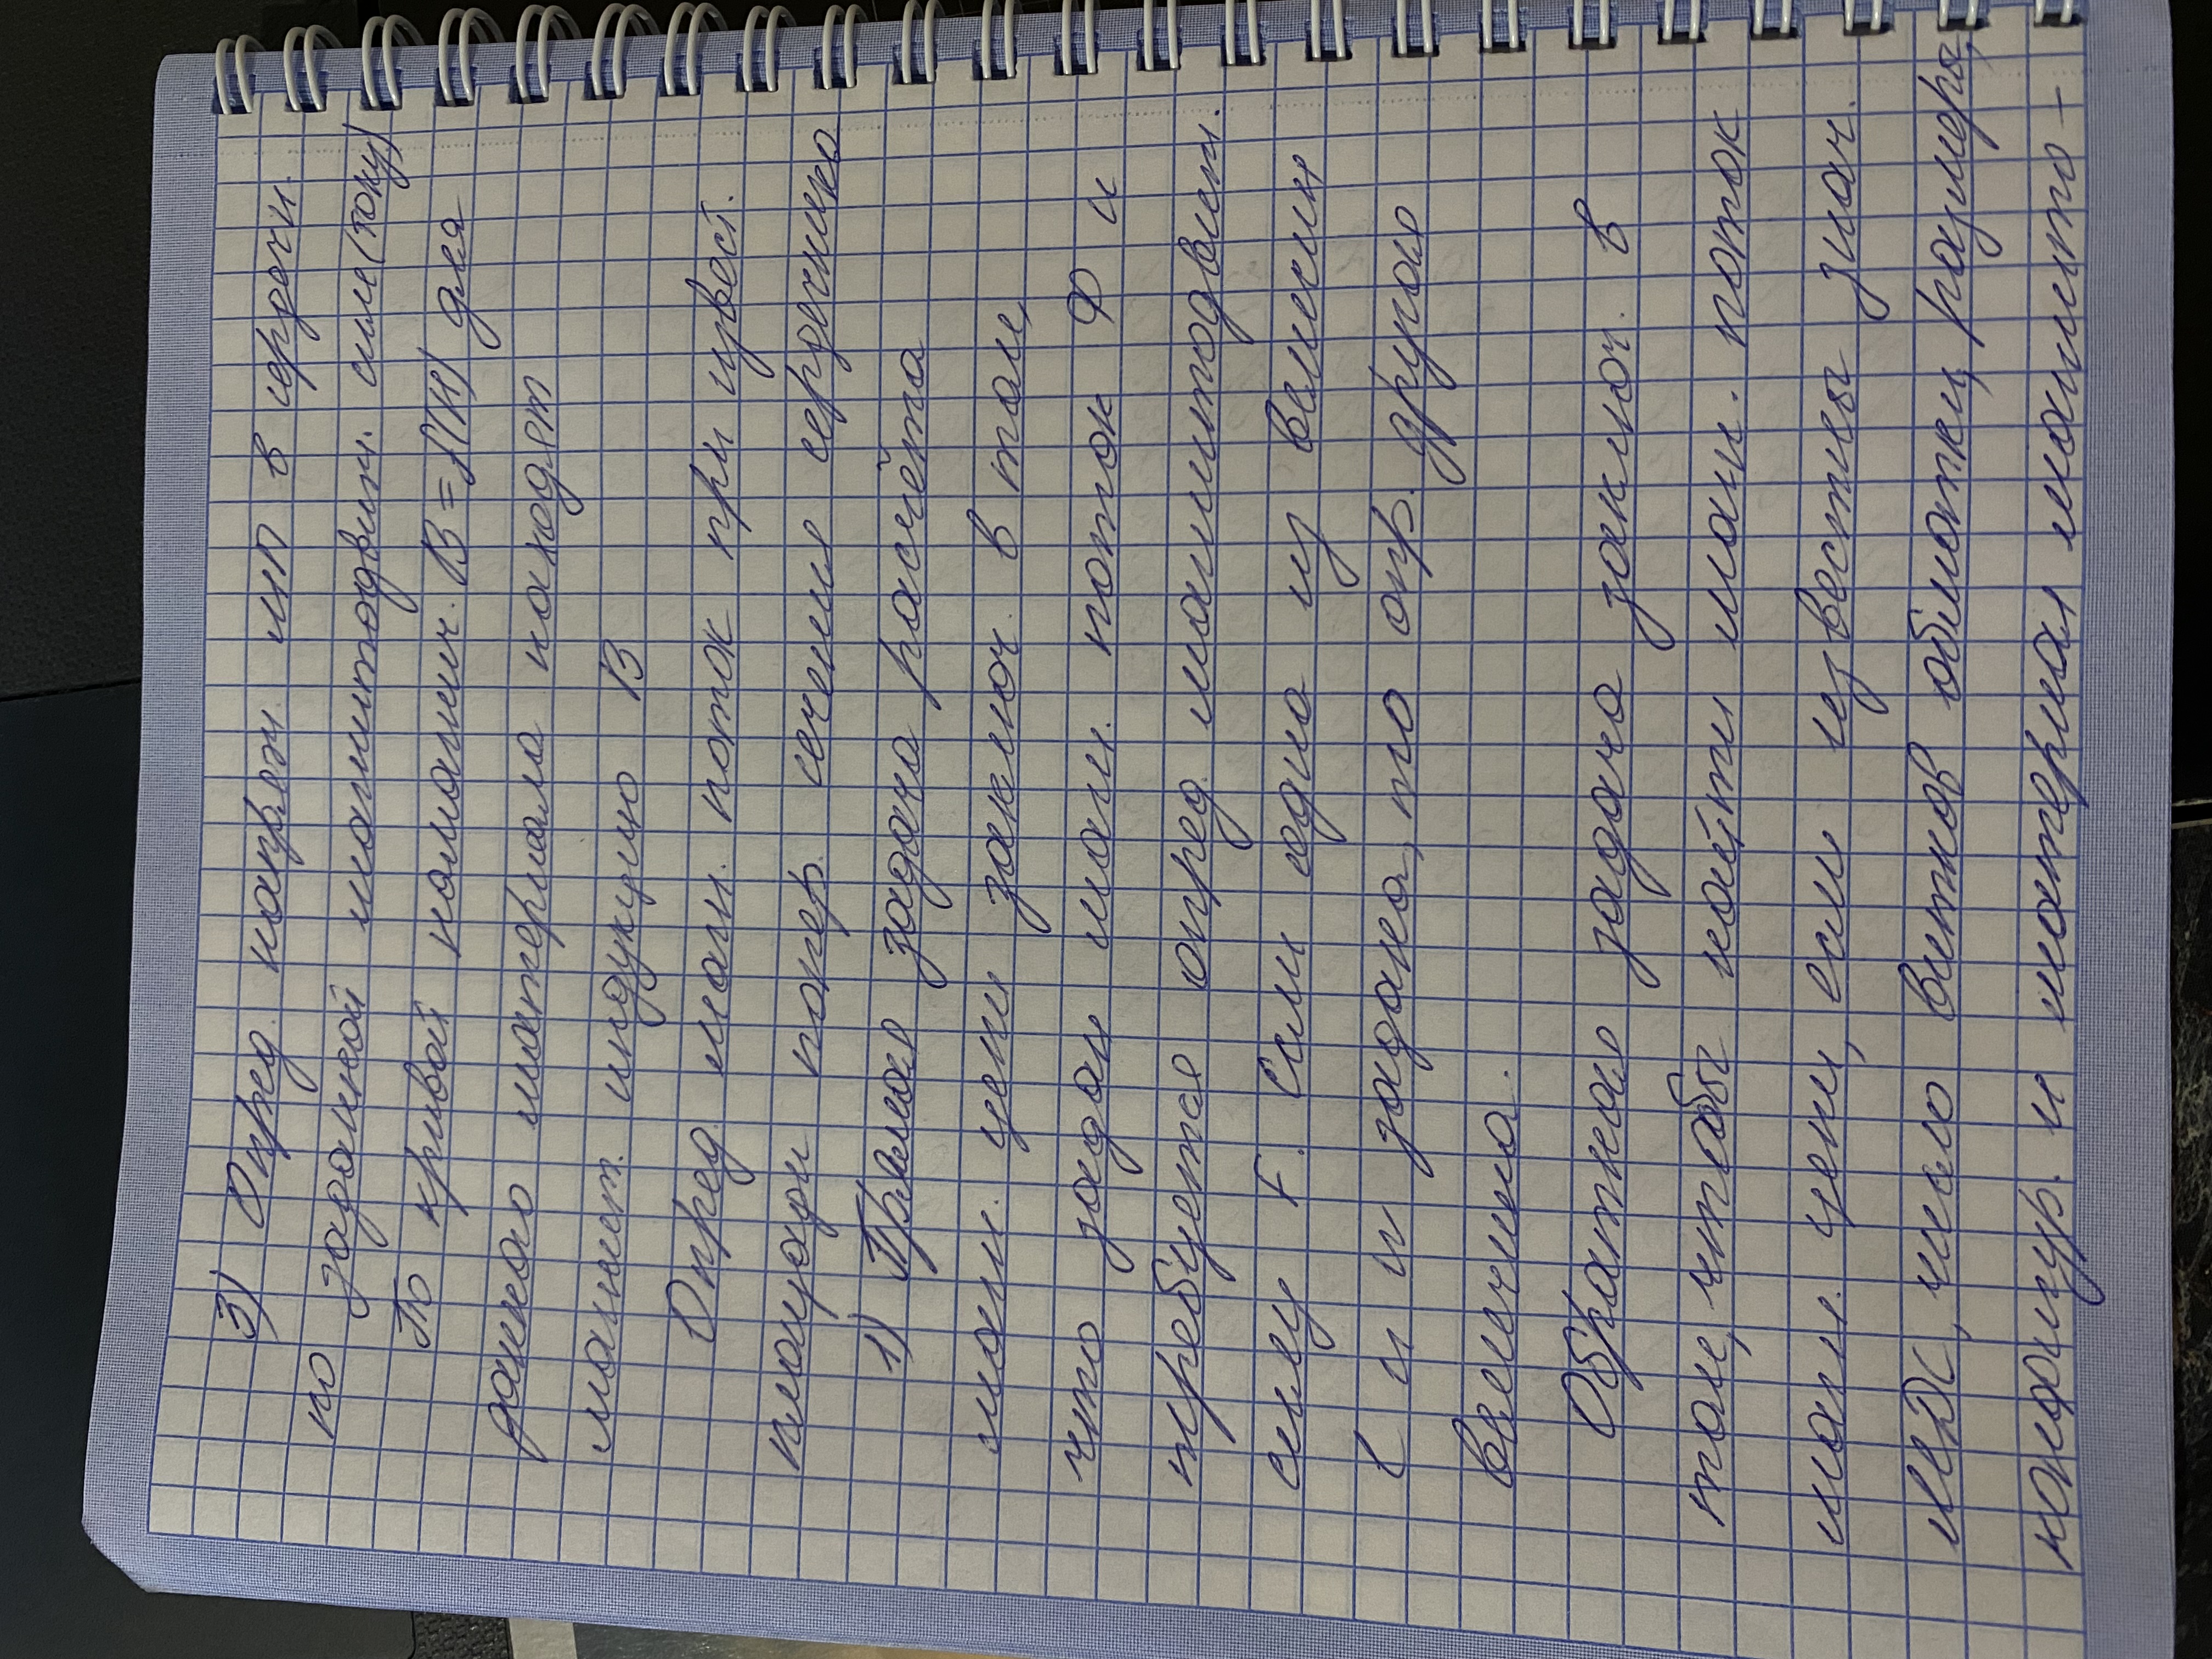 3) Опред. напряж. МП в сердечн.
по заданной магнитодвиж. силе (току)
По кривой намагнич. B = f(H) для
данного материала находят
магнит. индукцию B
Опред. магн. поток при извест.
площади попер. сечения сердечника
1) Прямая задача расчёта
магн. цепи заключ. в том,
что задан магн. поток Ф и
требуется опред. магнитодвиж.
силу F. Если одна из величин
и задана, то опр. другая
величина.
Обратная задача заключ. в
том, чтобы найти магн. поток
магн. цепи, если известны знач.
МДС, число витков обмотки, размеры,
конфигур. и материал магнито-